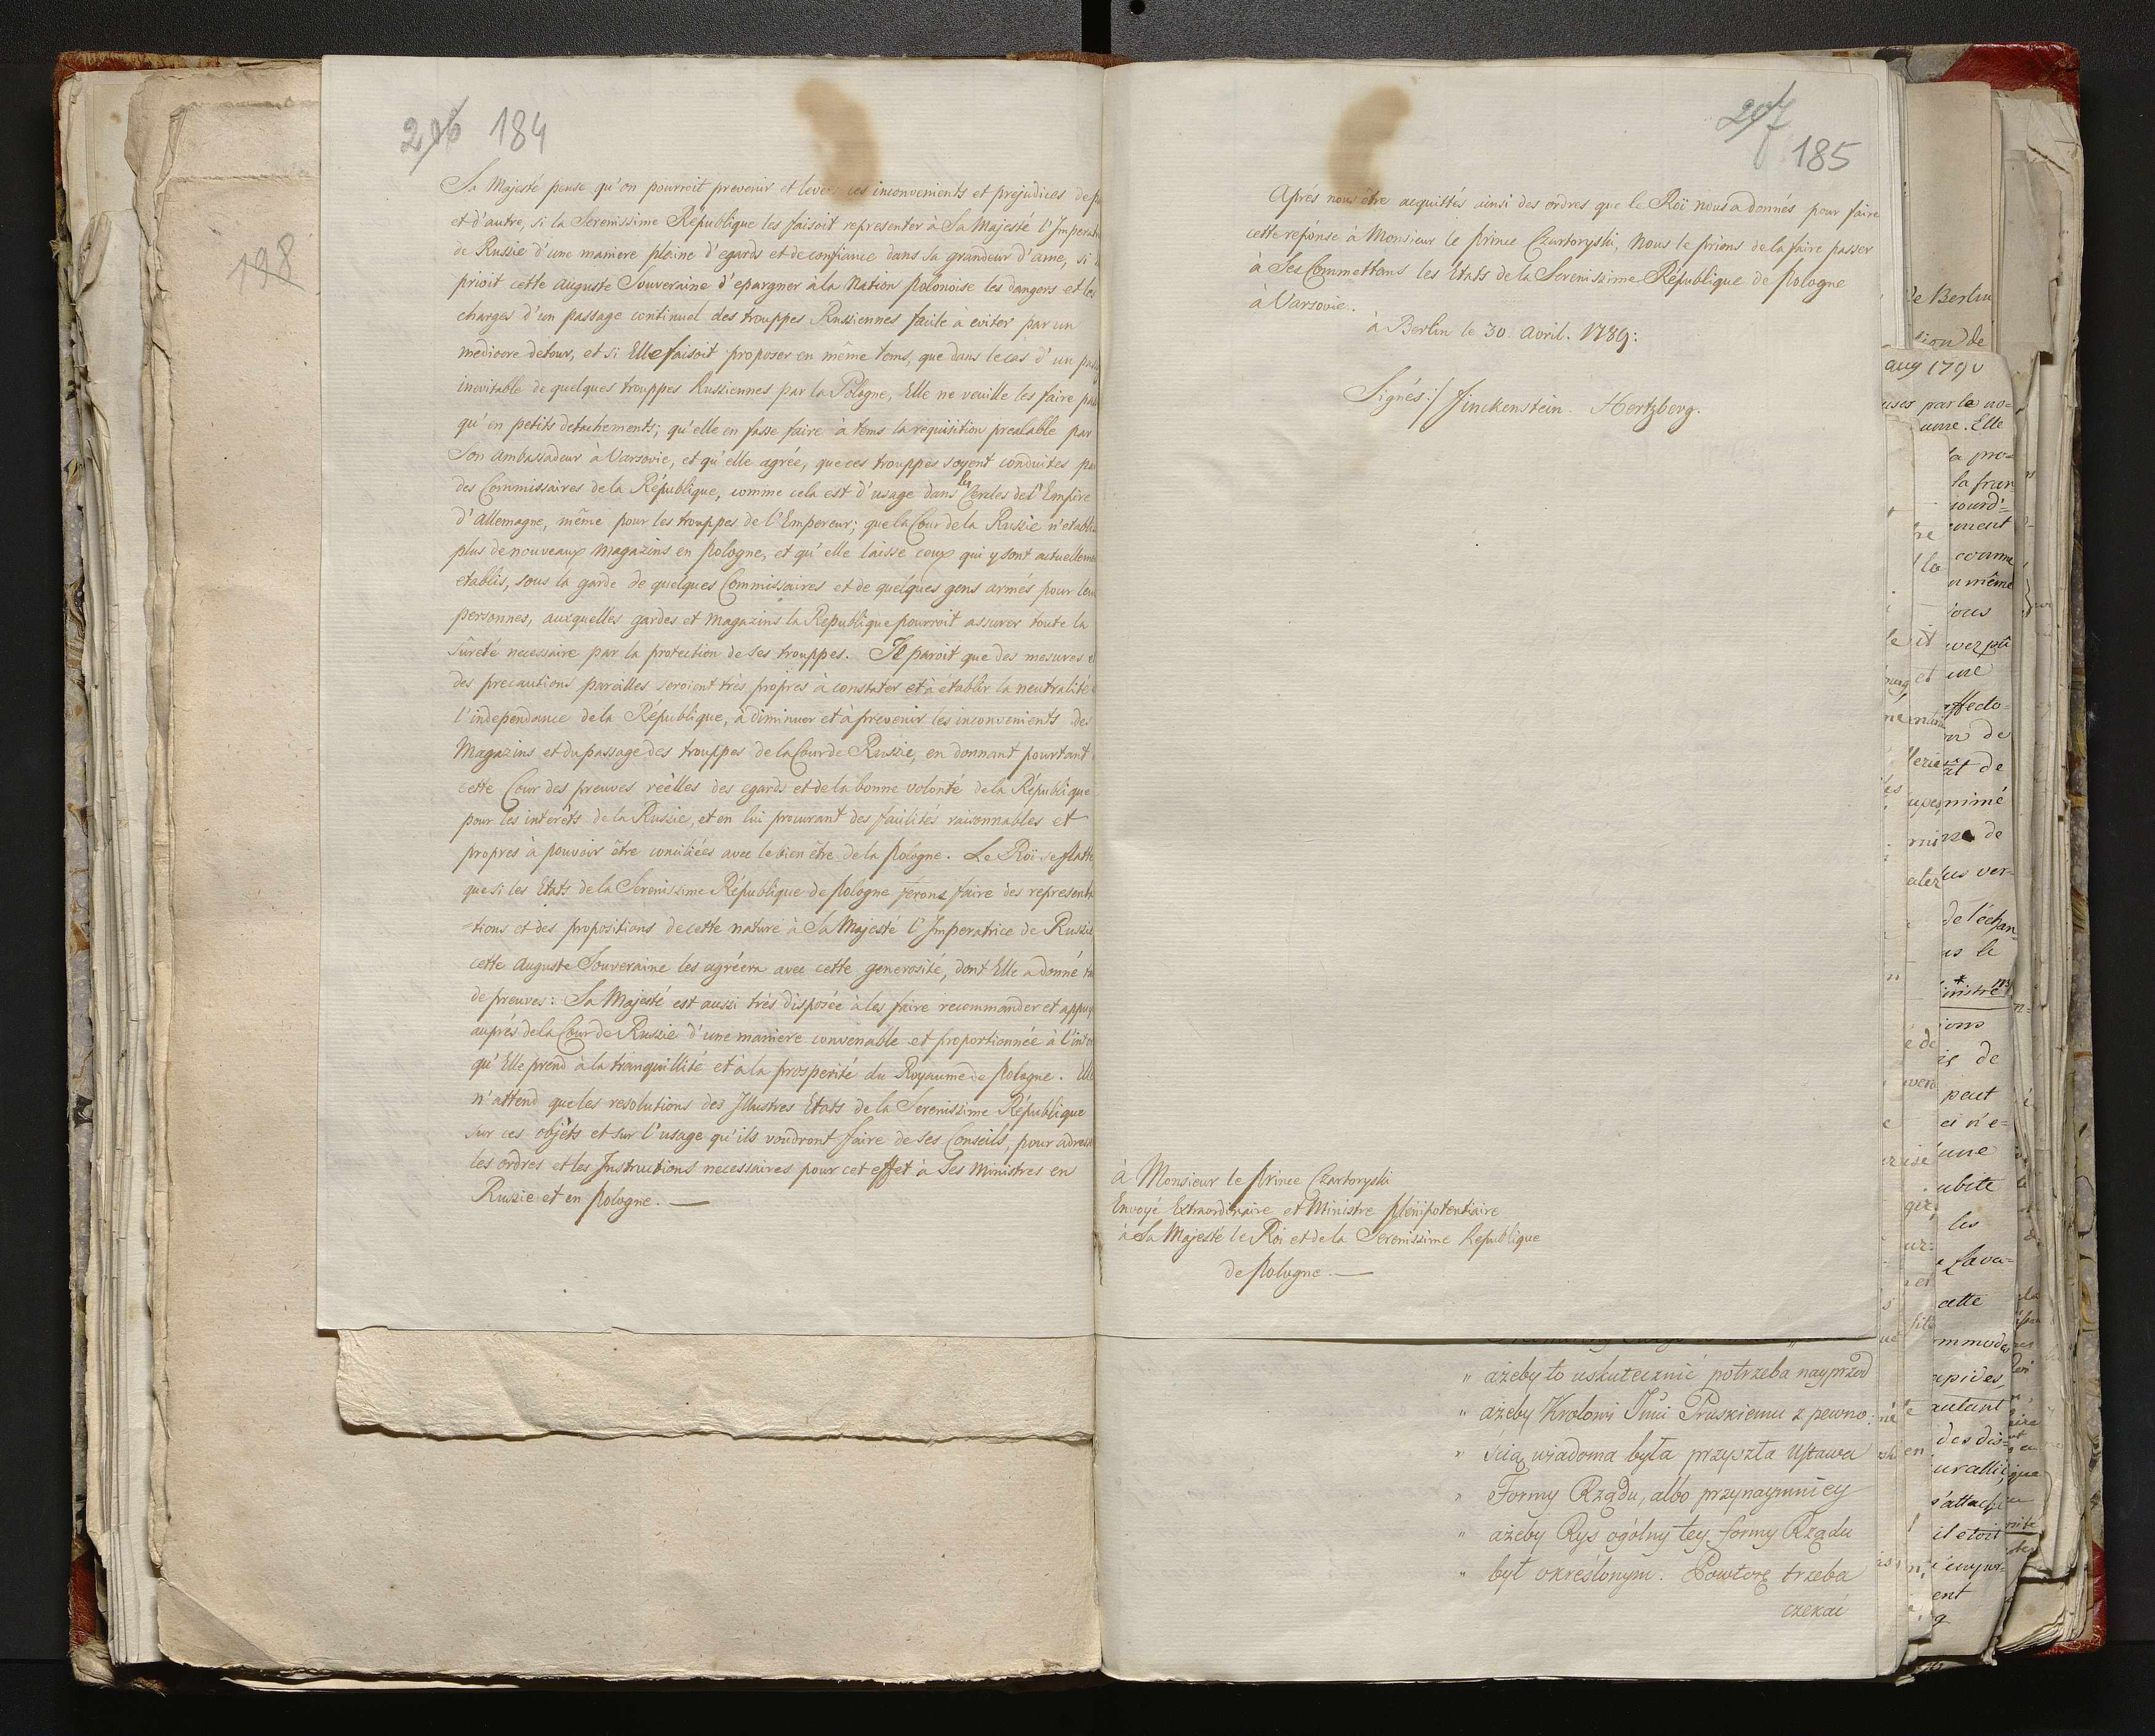 206 184
Sa Majesté pense qu'on pourroit prevenir et lever ces inconvenients et prejudices de
et d'autre, si la Serenissime République les faisoit representer à Sa Majesté l'Imperat
de Russie d'une maniere pleine d'egards et de confiance dans sa grandeur d'ame, si
prioit cette auguste Souveraine d'epargner à la Nation Polonoise les dangers et les
charges d'un passage continuel des trouppes Russiennes facile à eviter par un
mediocre detour, et si Elle faisoit proposer en même tems, que dans le cas d'un
inevitable de quelques trouppes Russiennes par la Pologne, Elle ne veuille les faire
qu'en petits detachements; qu'elle en fasse faire à tems la requisition prealable par
Son Ambassadeur à Varsovie, et qu'elle agrée, que ces trouppes soyent conduites
des Commissaires de la République, comme cela est d'usage dans les Cercles de l'Empire
d'Allemagne, même pour les trouppes de l'Empereur; que la Cour de la Russie n'etabli
plus de nouveaux magazins en Pologne, et qu'elle laisse ceux qui y sont actuelleme
etablis, sous la garde de quelques Commissaires et de quelques gens armés pour leu
personnes, auxquelles gardes et magazins la Republique pourroit assurer toute la
sûreté necessaire par la protection de ses trouppes. Il paroit que des mesures
des precautions pareilles seroient très propres à constater et à établir la neutralité
l'independance de la République, à diminuer et à prevenir les inconvenients des
Magazins et du passage des trouppes de la Cour de Russie, en donnant pourtant
cette Cour des preuves réëlles des egards et de la bonne volonté de la République
pour les interêts de la Russie, et en lui procurant des facilités raisonnables et
propres à pouvoir être conciliées avec le bien être de la Pologne. Le Roi se flatte
que si les Etats de la Serenissime République de Pologne ferons faire des represent
-tions et des propositions de cette nature à Sa Majesté l'Imperatrice de Russie
cette Auguste Souveraine les agréera avec cette generosité, dont Elle a donné
de preuves: Sa Majesté est aussi très disposée à les faire recommander et appuy
auprés de la Cour de Russie d'une maniere convenable et proportionnée à l'int
qu'Elle prend à la tranquillité et à la prosperité du Royaume de Pologne. Elle
n'attend que les resolutions des Illustres Etats de la Serenissime République
sur ces objêts et sur l'usage qu'ils voudront faire de ses Conseils, pour adres
les ordres et les Instructions necessaires pour cet effet à Ses Ministres en
Russie et en Pologne. —
198
207
185
Aprés nous être acquittés ainsi des ordres que le Roi nous a donnés pour faire
cette reponse à Monsieur le Prince Czartoryski, Nous le prions de la faire passer
à Ses Commettans les Etats de la Serenissime République de Pologne
à Varsovie.
à Berlin le 30 Avril. 1789:
Signés:/ Finckenstein. Hertzberg.
à Monsieur le Prince Czartoryski
Envoyé Extraordinaire et Ministre Plénipotentiaire
à Sa Majesté le Roi et de la Serenissime Republique
de Pologne. —
" ażeby to uskutecznić potrzeba nayprzod
" ażeby Krolowi Jmci Pruskiemu z pewno:
" ścią wiadoma była przyszła Ustawa
" Formy Rządu, albo przynaymniey
" ażeby Rys ogólny tey formy Rządu
" był określonym. Powtorę trzeba
czekać
de Berlin
aug 1790